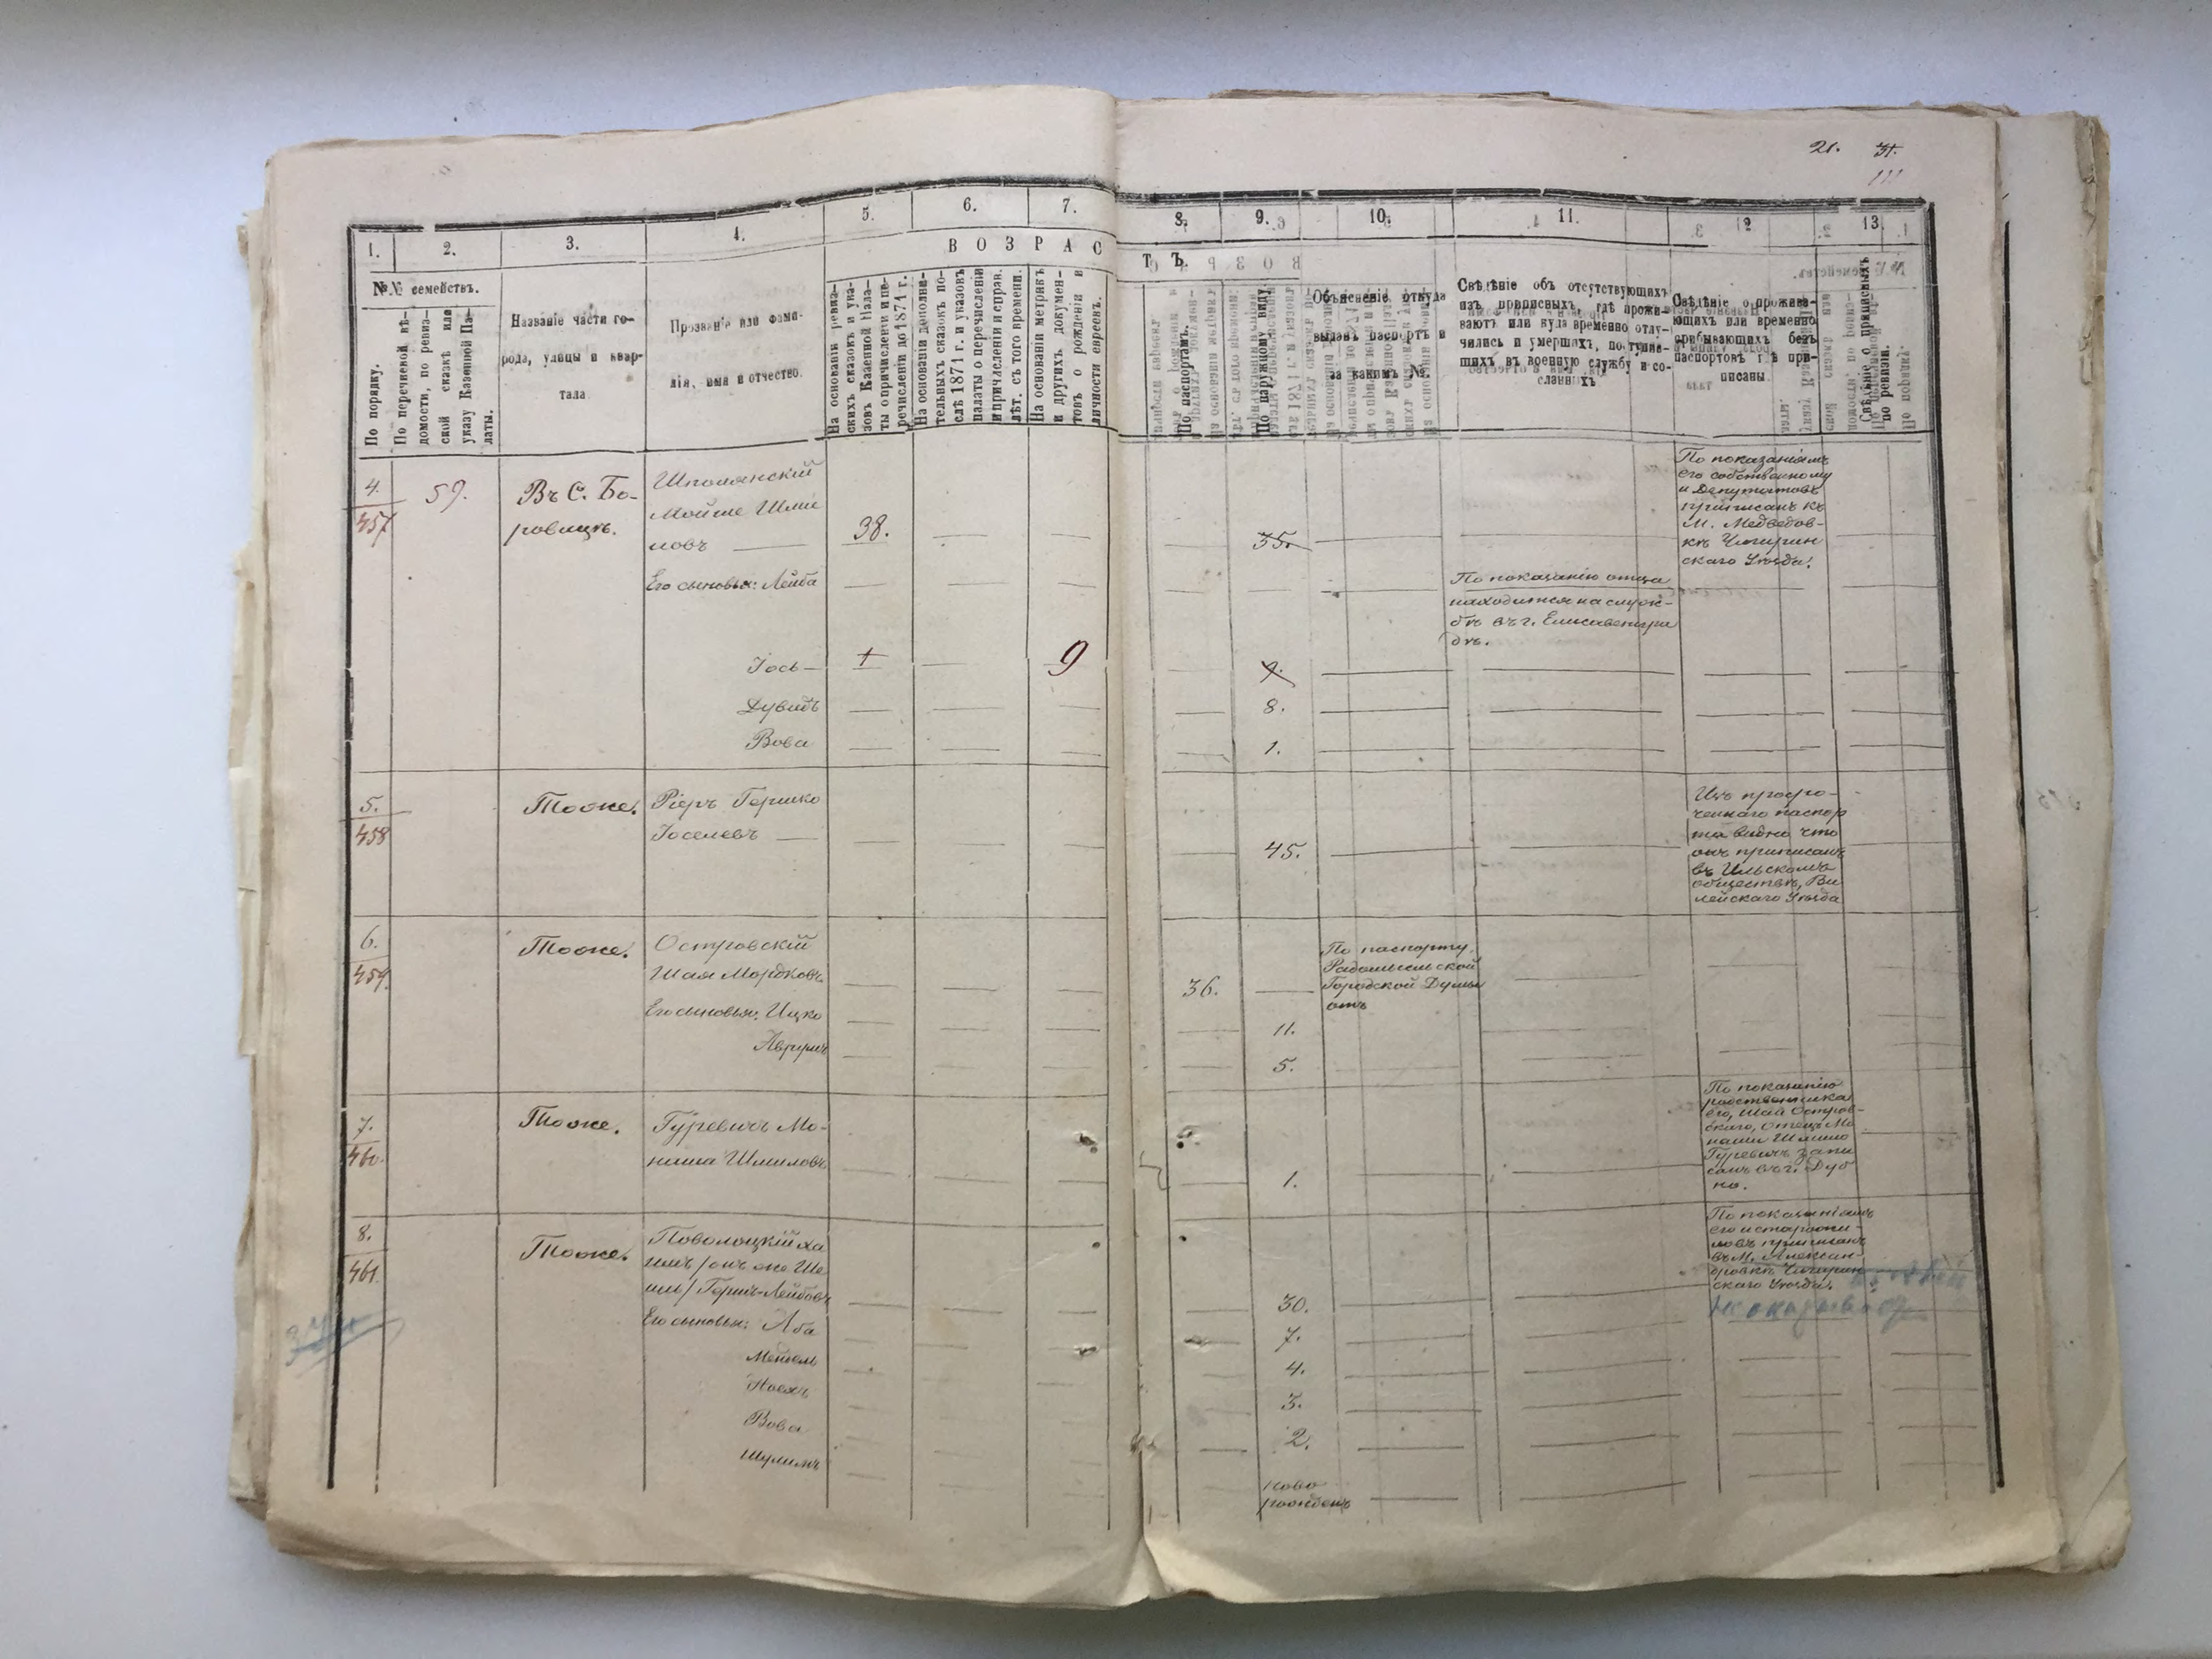 21. 31.
1. 2. 3. 4. 5. 6. 7. 8. 9. 10. 11. 12 13.
В О З Р А С Т Ъ.
№№ семействъ.
По порядку.
По перечневой вѣ-
домости, по ревиз-
ской сказкѣ или
указу Казенной Па-
латы.
Названіе части го-
рода, улицы и квар-
тала
Прозваніе или фами-
лія, имя и отчество.
На основаніи ревиз-
скихъ сказокъ и ука-
зовъ Казенной Пала-
ты о причисленіи и пе-
речисленіи до 1871 г.
На основаніи дополни-
тельныхъ сказокъ по-
слѣ 1871 г. и указовъ
палаты о перечисленіи
и причисленіи и справ.
лѣт. съ того времени.
На основаніи метрикъ
и другихъ докумен-
товъ о рожденіи и
личности евреевъ.
По паспортамъ.
По наружному виду.
Объясненіе откуда
выданъ паспортъ и
за какимъ №.
Свѣдѣніе объ отсутствующихъ
изъ приписныхъ, гдѣ прожи-
ваютъ или куда временно отлу-
чились и умершихъ, поступив-
шихъ въ военную службу и со-
сланныхъ
Свѣдѣніе о прожива-
ющихъ или временно
прибывающихъ безъ
паспортовъ гдѣ при-
писаны
Свѣдѣніе о приписныхъ
по ревизіи.
4.
457
59.
Въ С. Бо-
ровицѣ.
Шполянскій
Мойше Шми
ловъ
38.
35.
По показаніямъ
его собственному
и Депутатовъ
приписанъ къ
М. Медведов-
кѣ Чигирин
скаго Уѣзда.
Его сыновья: Лейба
По показанію отца
находится на служ-
бѣ въ г. Елисаветгра
дѣ.
Іось 1 9 9.
Дувидъ 8.
Вова 1.
5.
458
Тоже.
Ріеръ Гершко
Іоселевъ
45.
Изъ просро-
ченнаго паспор
та видно что
онъ приписанъ
въ Ильскомъ
обществѣ, Ви
лейскаго Уѣзда
6.
459.
Тоже.
Островскій
Шая Мордковъ
36.
По паспорту
Радомысльской
Городской Думы
отъ
Его сыновья: Ицко 11.
Аврумъ 5.
7.
460.
Тоже.
Гуревичъ Мо-
наша Шмиловъ
1.
По показанію
родственника
его, Шаи Остров-
скаго, отецъ Мо
наши Шмило
Гуревичъ запи
санъ въ г. Дуб
но.
8.
461.
Тоже.
Поволоцкій Ха
имъ /онъ же Ше
/ Гершъ-Лейбовъ
30.
По показаніямъ
его и старожи-
ловъ приписанъ
въ М. Алексан-
дровкѣ Чигирин
скаго Уѣзда.
Его сыновья: Аба 7.
Мендель 4.
Ноехъ 3.
Вова 2.
Шулимъ
ново
рожденъ